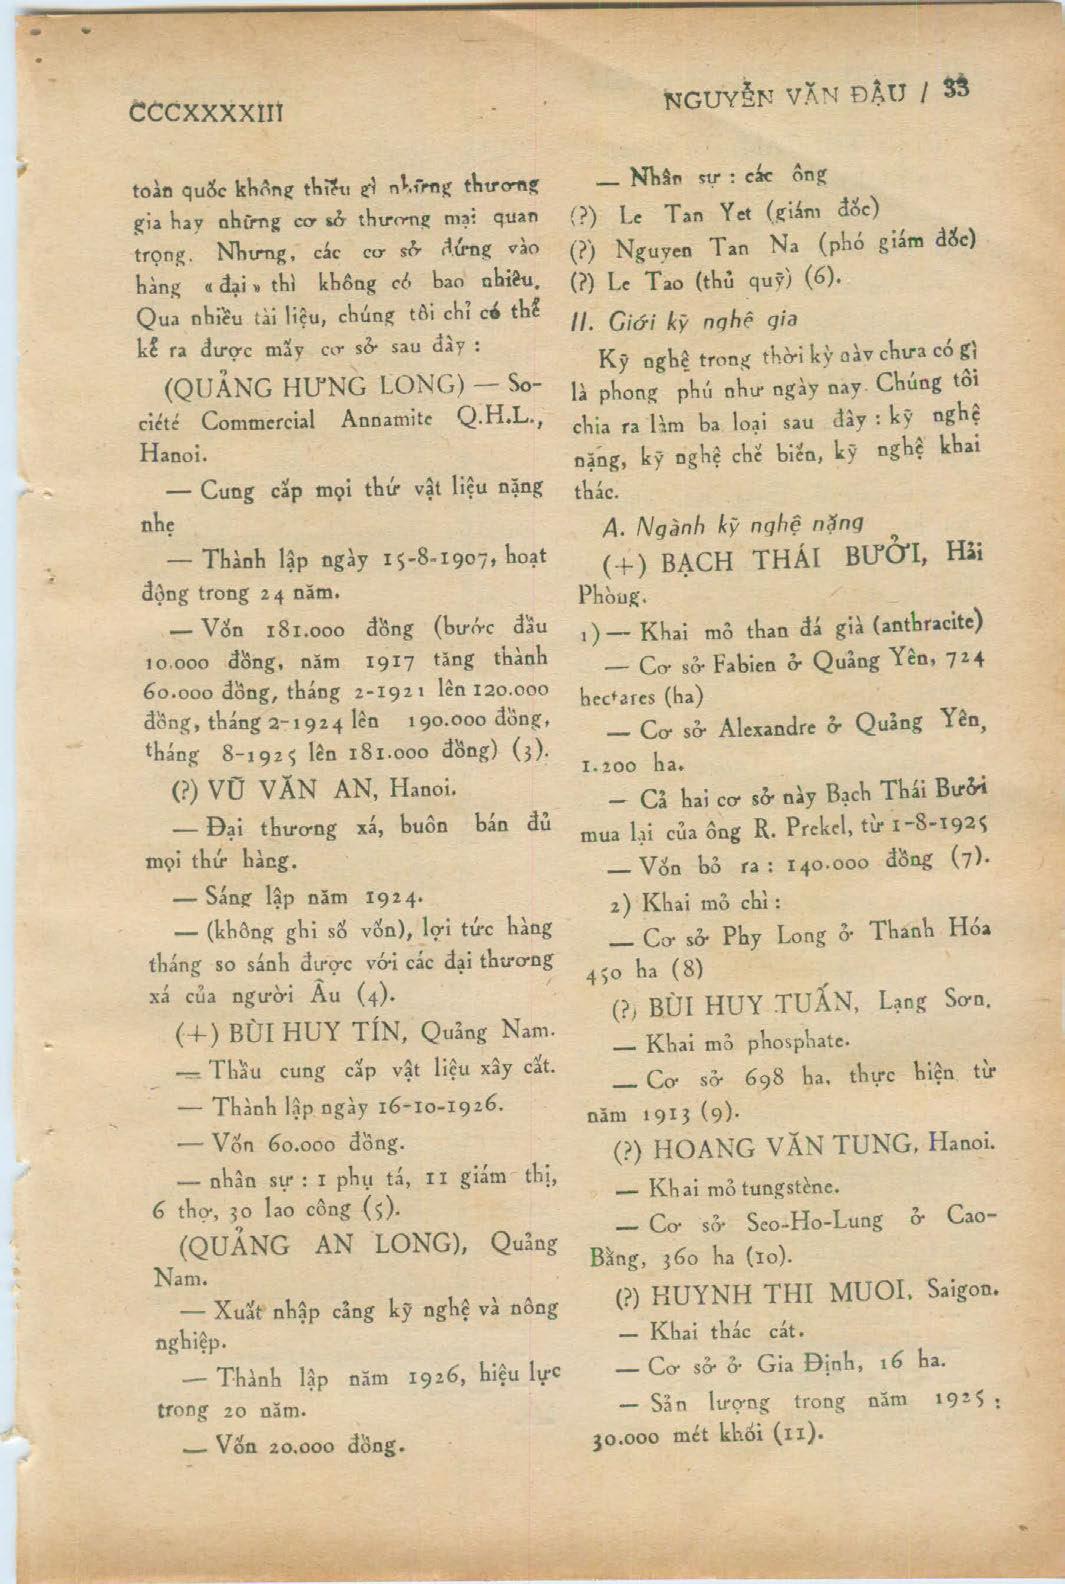 CCCXXXXIII
NGUYỄN VĂN ĐẬU / 33
toàn quốc không thiếu gì những thương
gia hay những cơ sở thương mại quan
trọng. Nhưng, các cơ sở đứng vào
hàng « đại » thì không có bao nhiêu.
Qua nhiều tài liệu, chúng tôi chỉ có thể
kể ra được mấy cơ sở sau đây :
(QUẢNG HƯNG LONG) — So-
ciété Commercial Annamite Q.H.L.,
Hanoi.
— Cung cấp mọi thứ vật liệu nặng
nhẹ
— Thành lập ngày 15-8-1907, hoạt
động trong 24 năm.
— Vốn 181.000 đồng (bước đầu
10.000 đồng, năm 1917 tăng thành
60.000 đồng, tháng 2-1921 lên 120.000
đồng, tháng 2-1924 lên 190.000 đồng,
tháng 8-1925 lên 181.000 đồng) (3).
(?) VŨ VĂN AN, Hanoi.
— Đại thương xá, buôn bán đủ
mọi thứ hàng.
— Sáng lập năm 1924.
— (không ghi số vốn), lợi tức hàng
tháng so sánh được với các đại thương
xá của người Âu (4).
(+) BÙI HUY TÍN, Quảng Nam.
— Thầu cung cấp vật liệu xây cất.
— Thành lập ngày 16-10-1926.
— Vốn 60.000 đồng.
— nhân sự : 1 phụ tá, 11 giám thị,
6 thợ, 30 lao công (5).
(QUẢNG AN LONG), Quảng
Nam.
— Xuất nhập cảng kỹ nghệ và nông
nghiệp.
— Thành lập năm 1926, hiệu lực
trong 20 năm.
— Vốn 20.000 đồng.
— Nhân sự : các ông
(?) Le Tan Yet (giám đốc)
(?) Nguyen Tan Na (phó giám đốc)
(?) Le Tao (thủ quỹ) (6).
II. Giới kỹ nghệ gia
Kỹ nghệ trong thời kỳ này chưa có gì
là phong phú như ngày nay. Chúng tôi
chia ra làm ba loại sau đây : kỹ nghệ
nặng, kỹ nghệ chế biến, kỹ nghệ khai
thác.
A. Ngành kỹ nghệ nặng
(+) BẠCH THÁI BƯỞI, Hải
Phòng.
1) — Khai mỏ than đá già (anthracite)
— Cơ sở Fabien ở Quảng Yên, 724
hectares (ha)
— Cơ sở Alexandre ở Quảng Yên,
1.200 ha.
— Cả hai cơ sở này Bạch Thái Bưởi
mua lại của ông R. Prekel, từ 1-8-1925
— Vốn bỏ ra : 140.000 đồng (7).
2) Khai mỏ chì :
— Cơ sở Phy Long ở Thanh Hóa
450 ha (8)
(?) BÙI HUY TUẤN, Lạng Sơn.
— Khai mỏ phosphate.
— Cơ sở 698 ha. thực hiện từ
năm 1913 (9).
(?) HOANG VĂN TUNG, Hanoi.
— Khai mỏ tungstène.
— Cơ sở Seo-Ho-Lung ở Cao-
Bằng, 360 ha (10).
(?) HUYNH THI MUOI, Saigon.
— Khai thác cát.
— Cơ sở ở Gia Định, 16 ha.
— Sản lượng trong năm 1925 :
30.000 mét khối (11).